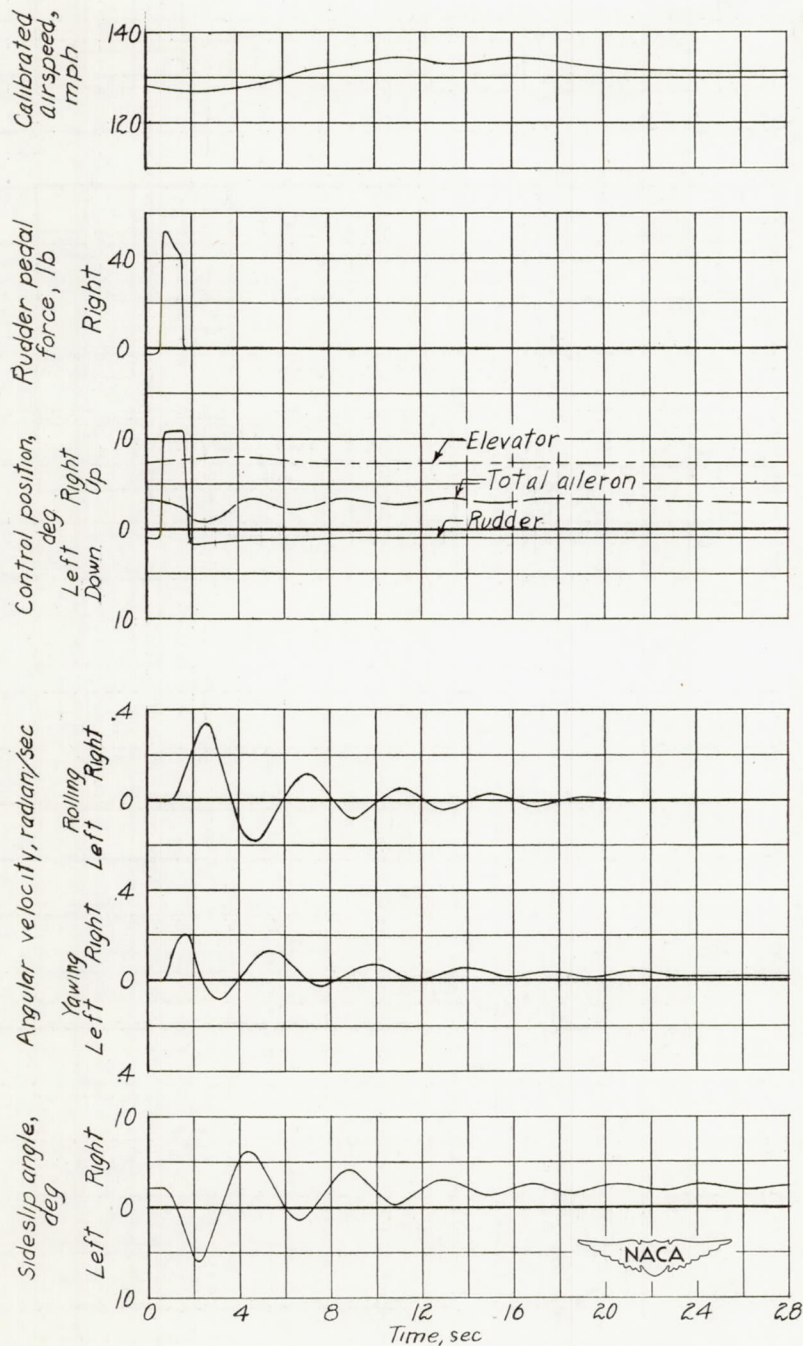 Calibrated
airspeed,
mph
140
120
Rudder pedal
force, lb
Right
40
0
Control position,
deg
Left Right
Down Up
10
0
10
Elevator
Total aileron
Rudder
Angular velocity, radian/sec
Rolling
Left Right
.4
0
.4
Yawing
Left Right
0
.4
Sideslip angle,
deg
Left Right
10
0
10
NACA
0 4 8 12 16 20 24 28
Time, sec